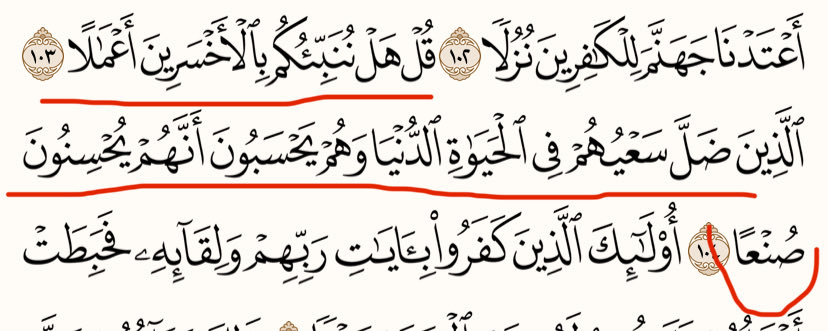 أَعۡتَدۡنَا جَهَنَّمَ لِلۡكَٰفِرِينَ نُزُلٗا ١٠٢ قُلۡ هَلۡ نُنَبِّئُكُم بِٱلۡأَخۡسَرِينَ أَعۡمَٰلًا ١٠٣
ٱلَّذِينَ ضَلَّ سَعۡيُهُمۡ فِي ٱلۡحَيَوٰةِ ٱلدُّنۡيَا وَهُمۡ يَحۡسَبُونَ أَنَّهُمۡ يُحۡسِنُونَ
صُنۡعًا ١٠٤ أُوْلَٰٓئِكَ ٱلَّذِينَ كَفَرُواْ بِـَٔايَٰتِ رَبِّهِمۡ وَلِقَآئِهِۦ فَحَبِطَتۡ